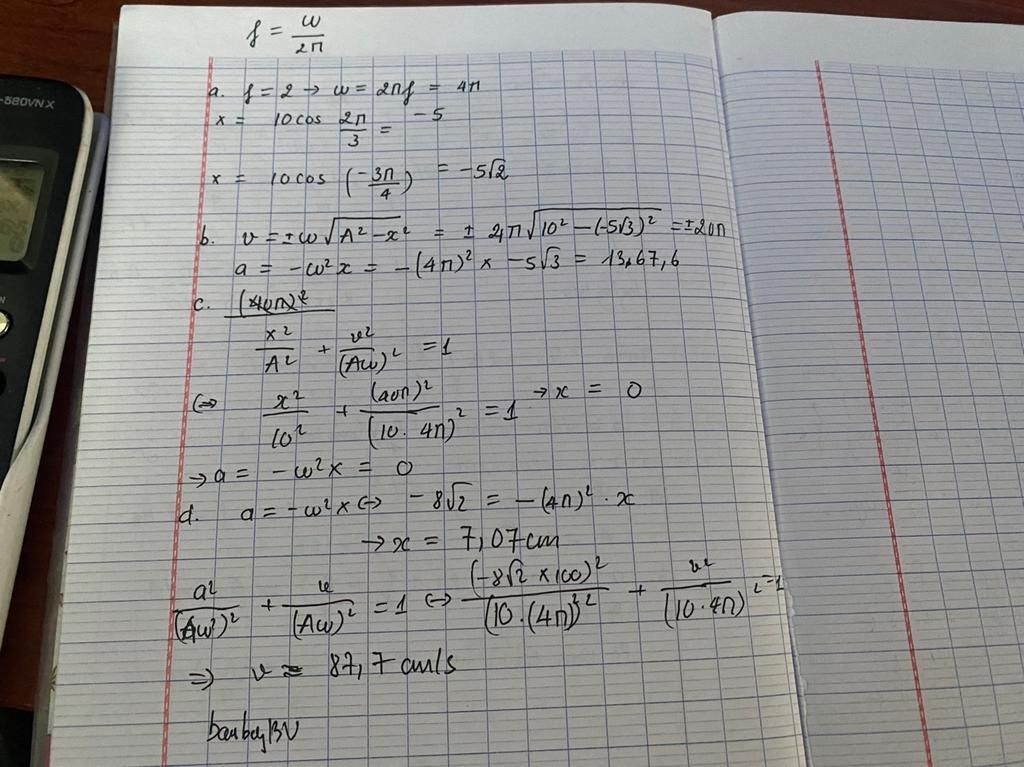 f = ω/2π
-580VNX
a. f = 2 → ω = 2πf = 4π
x = 10cos 2π/3 = -5
x = 10cos (-3π/4) = -5√2
b. v = ±ω√(A² - x²) = ± 4π√(10² - (-5√3)²) = ±20π
a = -ω²x = -(4π)² × -5√3 = 13,67,6
c. (40π)²
x²/A² + v²/(Aω)² = 1
⇔ x²/10² + (40π)²/(10. 4π)² = 1 → x = 0
→ a = -ω²x = 0
d. a = -ω²x ⇔ -8√2 = -(4π)² . x
→ x = 7,07cm
a²/(Aω²)² + v/(Aω)² = 1 ⇔ (-8√2 ×100)²/(10.(4π)²)² + v²/(10.4π)² = 1
⇒ v = 87,7 cm/s